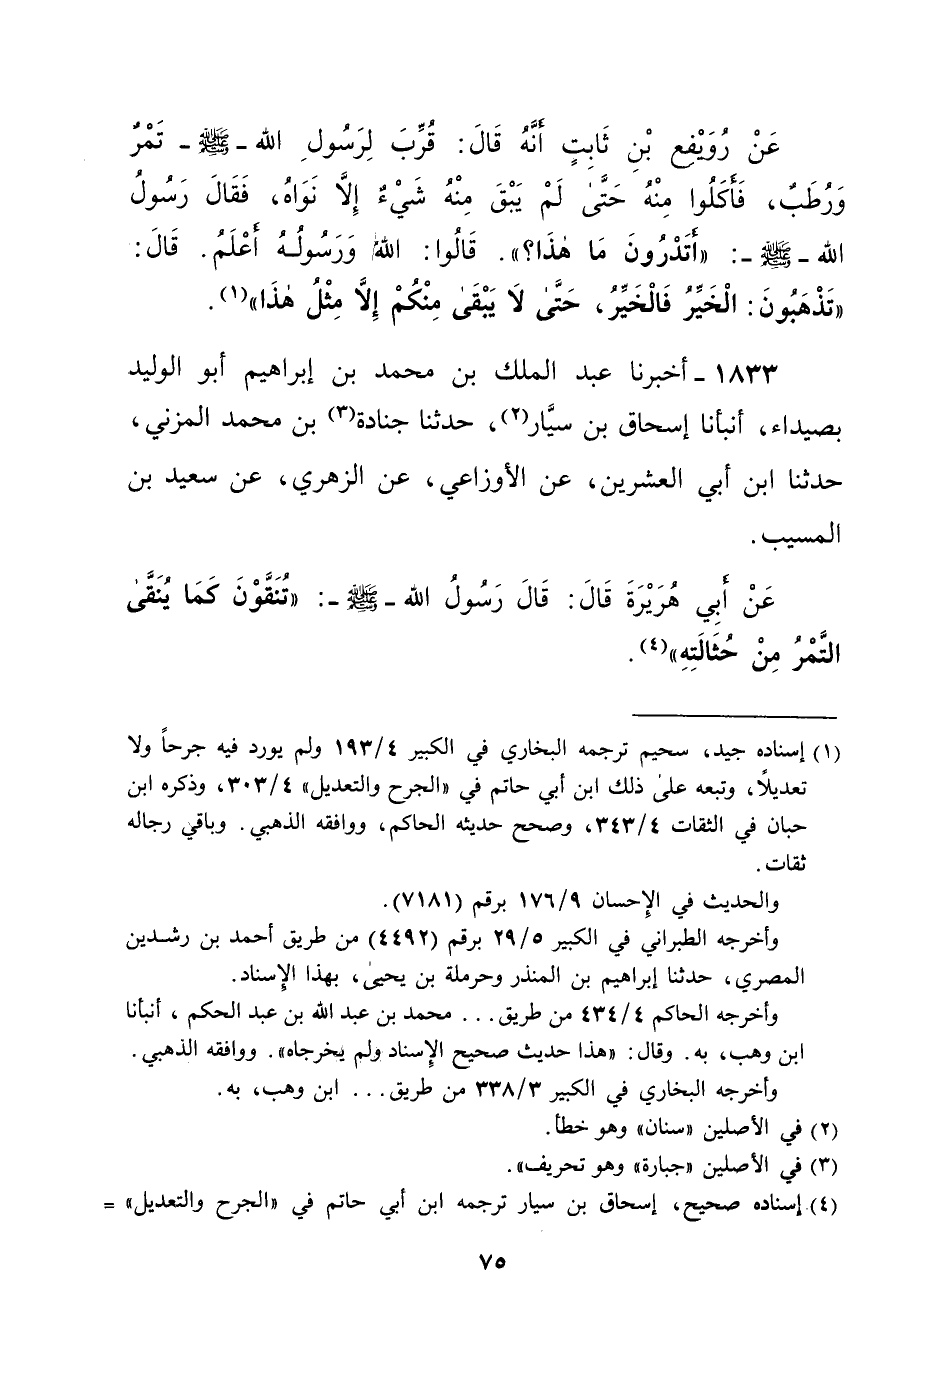 عَنْ رُوَيْفِعِ بْنِ ثَابِتٍ أَنَّهُ قَالَ: قُرِّبَ لِرَسُولِ اللهِ - ﷺ - تَمْرٌ
وَرُطَبٌ، فَأَكَلُوا مِنْهُ حَتَّىٰ لَمْ يَبْقَ مِنْهُ شَيْءٌ إِلَّا نَوَاهُ، فَقَالَ رَسُولُ
اللهِ - ﷺ -: «أَتَدْرُونَ مَا هٰذَا؟». قَالُوا: اللهُ وَرَسُولُهُ أَعْلَمُ. قَالَ:
«تَذْهَبُونَ: الْخَيِّرُ فَالْخَيِّرُ، حَتَّىٰ لَا يَبْقَىٰ مِنْكُمْ إِلَّا مِثْلُ هٰذَا»(١).
١٨٣٣ - أخبرنا عبد الملك بن محمد بن إبراهيم أبو الوليد
بصيداء، أنبأنا إسحاق بن سيَّار(٢)، حدثنا جنادة(٣) بن محمد المزني،
حدثنا ابن أبي العشرين، عن الأوزاعي، عن الزهري، عن سعيد بن
المسيب.
عَنْ أَبِي هُرَيْرَةَ قَالَ: قَالَ رَسُولُ اللهِ - ﷺ -: «تُنَقَّوْنَ كَمَا يُنَقَّىٰ
التَّمْرُ مِنْ حُثَالَتِهِ»(٤).
(١) إسناده جيد، سحيم ترجمه البخاري في الكبير ١٩٣/٤ ولم يورد فيه جرحاً ولا
تعديلاً، وتبعه علىٰ ذلك ابن أبي حاتم في «الجرح والتعديل» ٣٠٣/٤، وذكره ابن
حبان في الثقات ٣٤٣/٤، وصحح حديثه الحاكم، ووافقه الذهبي. وباقي رجاله
ثقات.
والحديث في الإحسان ١٧٦/٩ برقم (٧١٨١).
وأخرجه الطبراني في الكبير ٢٩/٥ برقم (٤٤٩٢) من طريق أحمد بن رشدين
المصري، حدثنا إبراهيم بن المنذر وحرملة بن يحيىٰ، بهذا الإسناد.
وأخرجه الحاكم ٤٣٤/٤ من طريق... محمد بن عبد الله بن عبد الحكم، أنبأنا
ابن وهب، به. وقال: «هذا حديث صحيح الإسناد ولم يخرجاه». ووافقه الذهبي.
وأخرجه البخاري في الكبير ٣٣٨/٣ من طريق... ابن وهب، به.
(٢) في الأصلين «سنان» وهو خطأ.
(٣) في الأصلين «جبارة» وهو تحريف».
(٤) إسناده صحيح، إسحاق بن سيار ترجمه ابن أبي حاتم في «الجرح والتعديل» =
٧٥